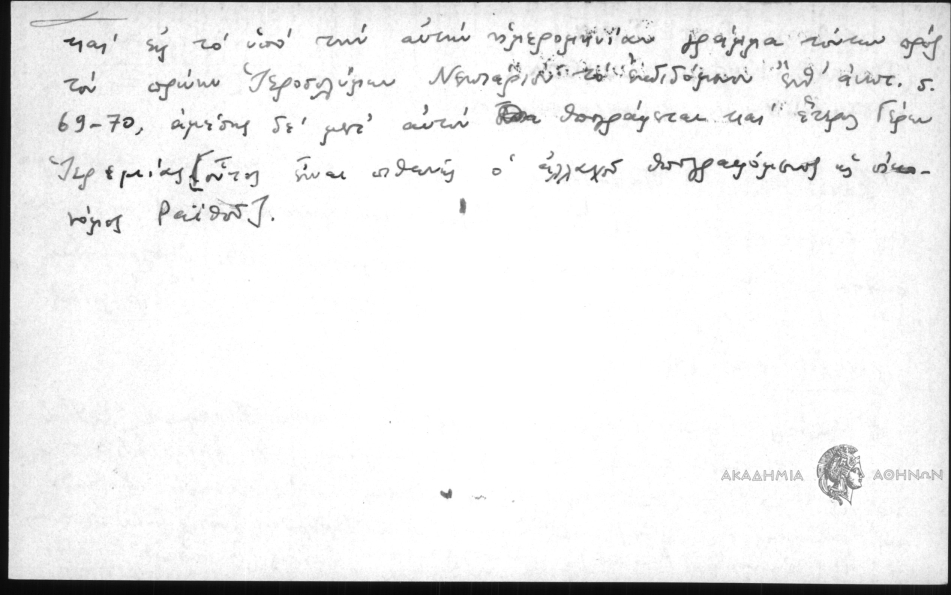 καὶ εἰς τὸ ὑπὸ τὴν αὐτὴν ἡμερομηνίαν γράμμα τούτων πρὸς
τὸν πρώην Ἱεροσολύμων Νεκτάριον τὸ ἐκδιδόμενον ἔνθ' ἀνωτ. σ.
69-70, ἀμέσως δὲ μετ' αὐτὸν ὑπογράφεται καὶ ἕτερος Γέρων
Ἱερεμίας [οὗτος εἶναι πιθανῶς ὁ ἀλλαχοῦ ὑπογραφόμενος ὡς οἰκο-
νόμος Ραϊθοῦ].
ΑΚΑΔΗΜΙΑ ΑΘΗΝΩΝ